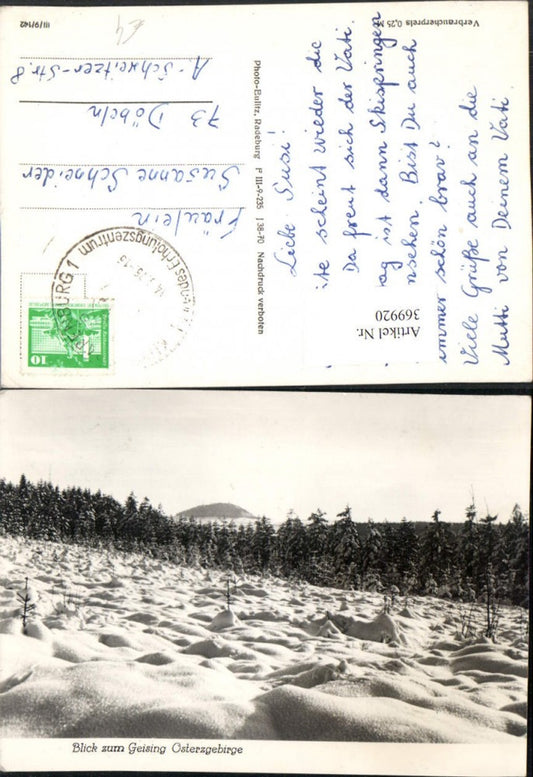 Liebe Susi!
te scheint wieder die
Da freut sich der Vati.
ag ist dann Skispringen
nsehen. Bist Du auch
immer schön brav?
Viele Grüße auch an die
Mutti von Deinem Vati.
Artikel Nr.
369920
Verbraucherpreis 0,25 M
Photo-Eulitz, Radeburg F III-9-235 J 38-70 Nachdruck verboten
10
BURG 1
des Erholungszentrum
Fräulein
Susanne Schneider
73 Döbeln
A.-Schweitzer-Str. 8
III/9/142
Blick zum Geising Osterzgebirge